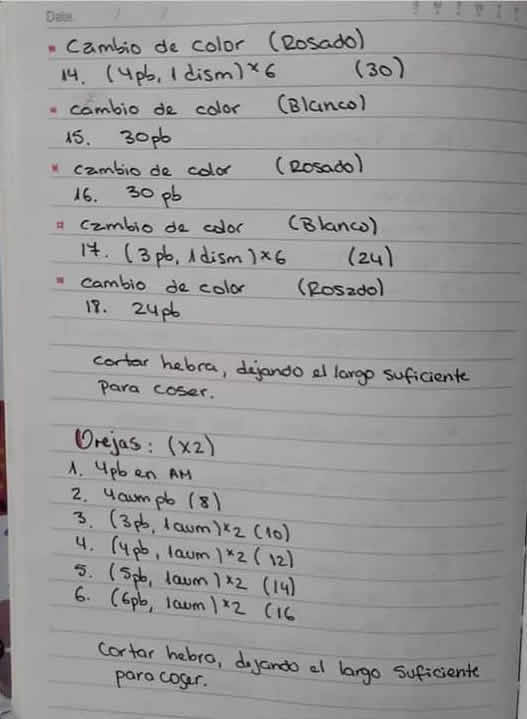 Date. / /
Cambio de color (Rosado)
14. (4pb, 1 dism)*6 (30)
cambio de color (Blanco)
15. 30pb
cambio de color (Rosado)
16. 30 pb
cambio de color (Blanco)
17. (3pb, 1 dism)*6 (24)
cambio de color (Rosado)
18. 24pb
Cortar hebra, dejando el largo suficiente
para coser.
Orejas: (x2)
1. 4pb en AM
2. 4aum pb (8)
3. (3pb, 1aum)*2 (10)
4. (4pb, 1aum)*2 (12)
5. (5pb, 1aum)*2 (14)
6. (6pb, 1aum)*2 (16
Cortar hebra, dejando el largo suficiente
para coser.